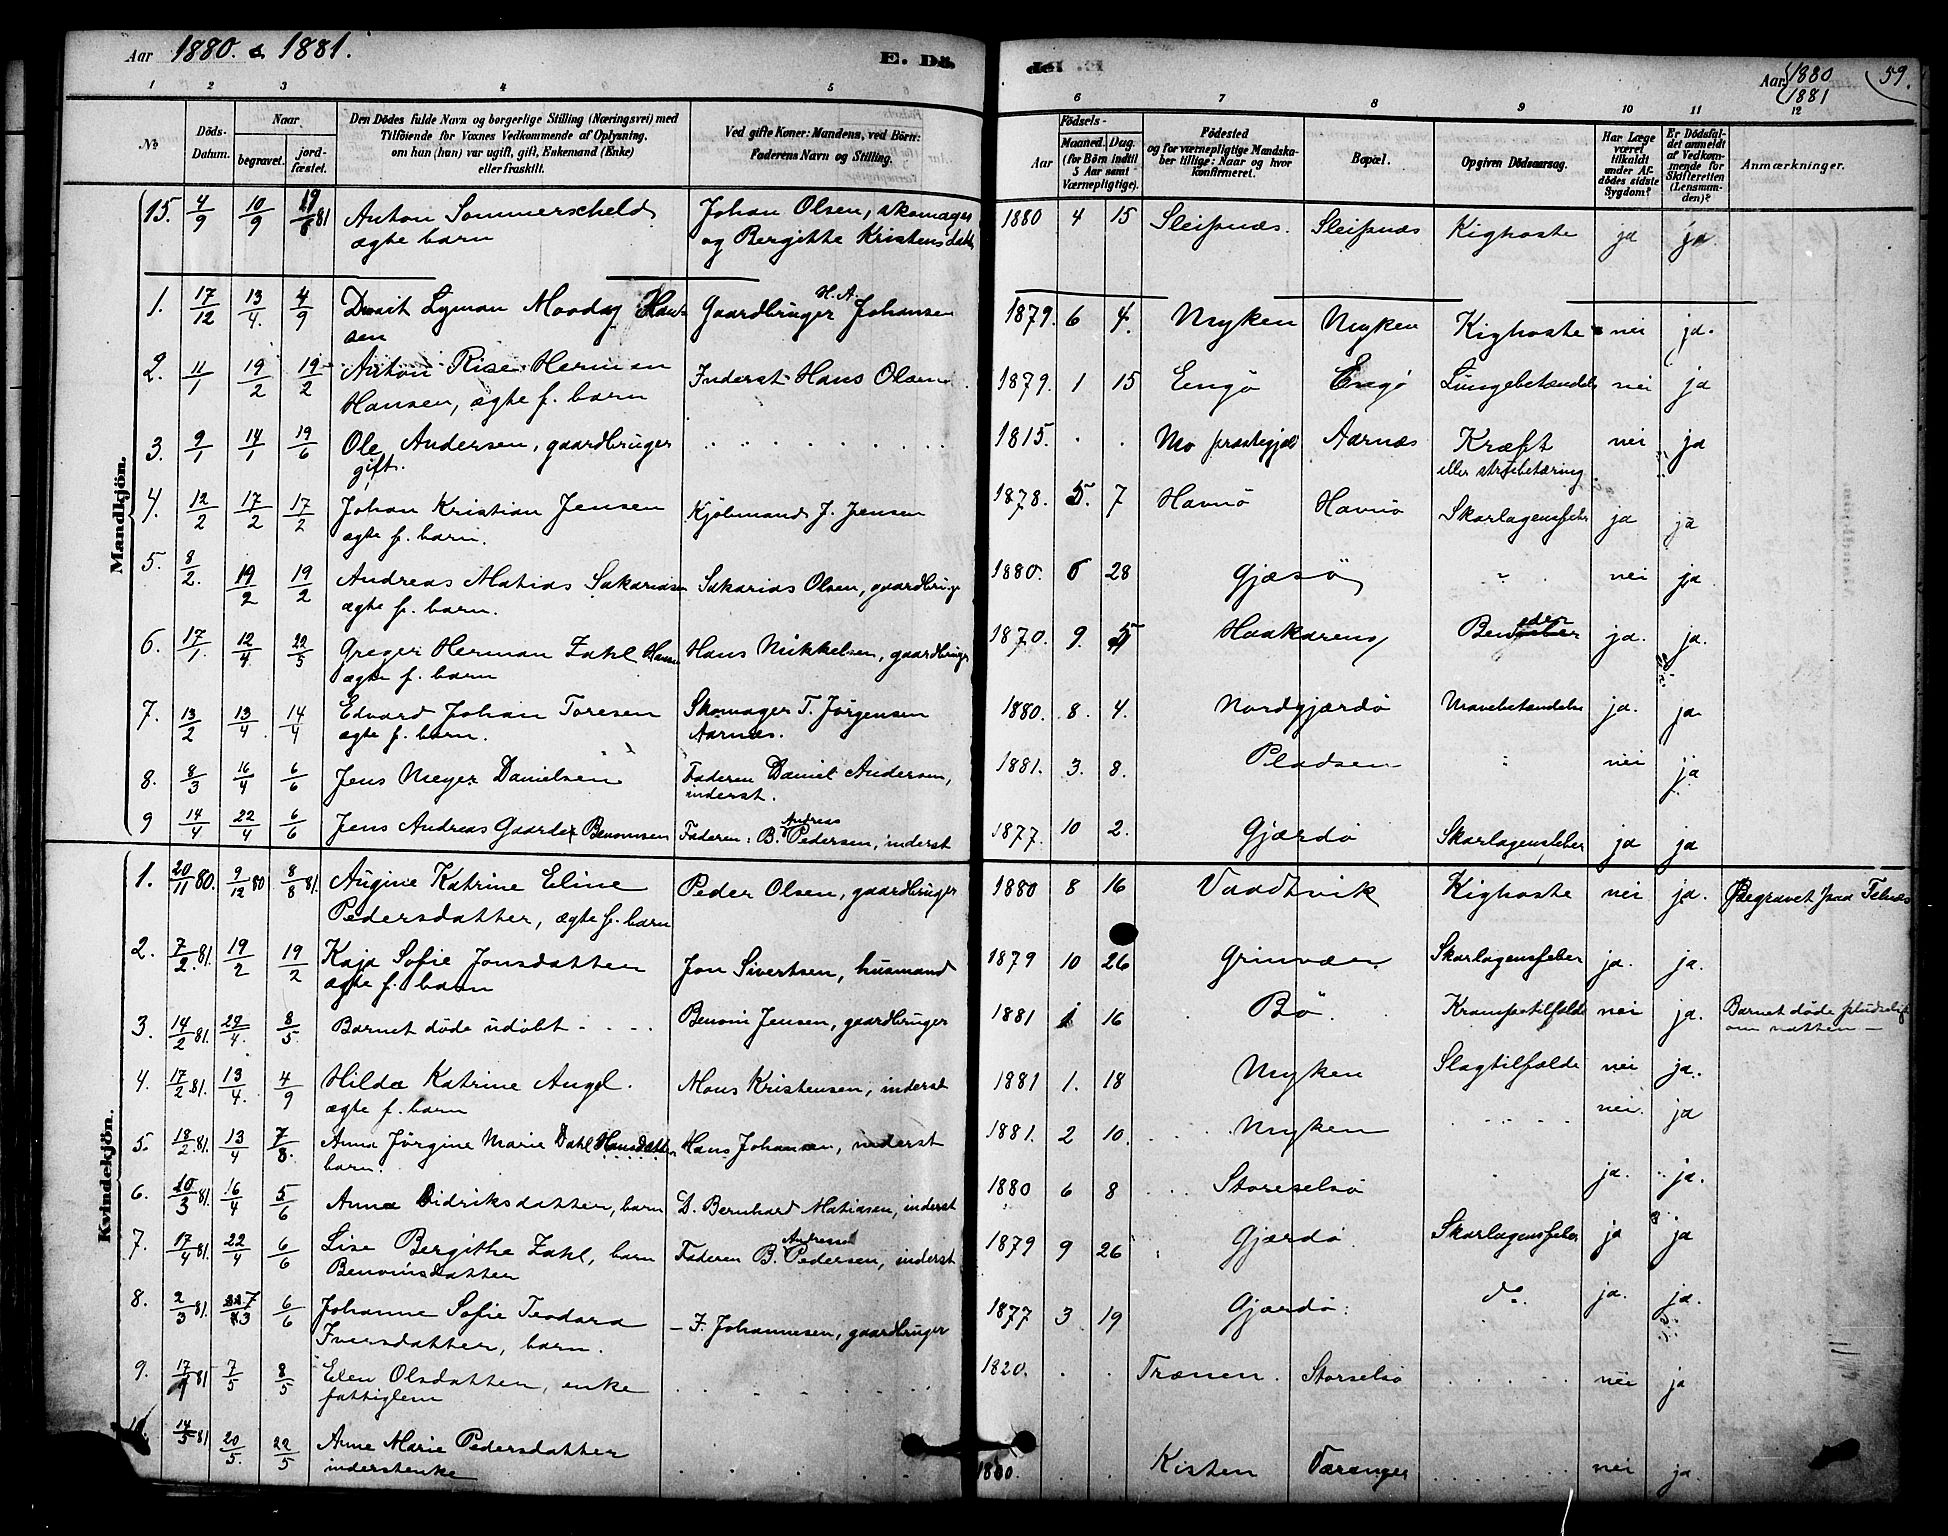 Aar 1880. & 1881.
E. Dö-
de.
Aar 1880
1881
59.
1 2 3 4 5 6 7 8 9 10 11 12
№
Döds-
Datum.
Naar
begravet.
jord-
fæstet.
Den Dödes fulde Navn og borgerlige Stilling (Næringsvei) med
Tilföiende for Voxnes Vedkommende af Oplysning,
om han (hun) var ugift, gift, Enkemand (Enke)
eller fraskilt.
Ved gifte Koner: Mandens, ved Börn:
Faderens Navn og Stilling.
Födsels-
Aar
Maaned. Dag.
(for Börn indtil
5 Aar samt
Værnepligtige).
Födested
og for værnepligtige Mandska-
ber tillige: Naar og hvor
konfirmeret.
Bopæl.
Opgiven Dödsaarsag.
Har Læge
været
tilkaldt
under Af-
dödes sidste
Sygdom?
Er Dödsfal-
det anmeldt
af Vedkom-
mende for
Skifteretten
(Lensman-
den)?
Anmærkninger.
Mandkjön.
15. 4/9 10/9 Anton Sommerscheld Johan Olsen, skomager 1880 4 15 Sleipnæs. Sleipnæs Kighoste ja ja.
ægte barn og Bergitte Kristensdatt
1. 17/12 13/4. 4/9 Lyman Mooday Han- Gaardbruger H. A. Johansen 1879. 6 4. Myken Myken Kighoste nei ja.
sen
2. 11/1 19/2 19/2 Anton Rise Herman Inderst Hans Olsen 1879. 1 15 Engö Engö Lungebetændels nei ja
Hansen, ægte f. barn
3. 9/1 14/1 19/6 Ole Andersen, gaardbruger 1815. Mo præstegjæl Aarnæs Kræft nei ja
gift. eller strubetæring
4. 12/2 17/2 17/2 Johan Kristian Jensen Kjöbmand J. Jensen 1878. 5. 7 Havnö Havnö Skarlagensfeber ja ja
ægte f. barn.
5. 8/2. 19/2 19/2 Andreas Matias Sakariasen Sakarias Olsen, gaardbrug 1880. 6 28 Gjæsö nei ja.
ægte f. barn.
6. 17/1. 12/4 22/5 Greger Herman Zahl Hansen Hans Mikkelsen, gaardbruger 1870. 9. 5 Haakareng ja. ja.
ægte f. barn
7. 13/2 13/4 14/4 Edvard Johan Toresen Skomager T. Jörgensen 1880. 8. 4. Nordgjærdö Mavebetændelse ja. ja.
ægte f. barn. Aarnæs.
8. 8/3 16/4 6/6 Jens Meyer Danielsen Faderen Daniel Andersen, 1881. 3. 8. Pladsen nei ja
inderst.
9 14/4 22/4 6/6 Jens Andreas Gaarder Benonisen Faderen: B. Andreas Pedersen, inderst 1877. 10 2. Gjærdö Skarlagensfeber ja ja
Kvindekjön.
1. 20/11 80. 9/12 80 8/8 81. Augine Katrine Eline Peder Olsen, gaardbruger 1880 8 16 Vaadtvik Kighoste nei ja. Begravet paa Telnæs
Pedersdatter, ægte f. barn
2. 7/2. 81. 19/2 19/2 Kaja Sofie Jonsdatter Jon Sivertsen, husmand 1879 10 26 Grinvær Skarlagensfeber ja. ja.
ægte f. barn
3. 14/2 81. 8/5 Barnet döde udöbt Benoni Jensen, gaardbruger 1881 1 16 Bö. Krampetilfælde nei ja. Barnet döde pludselig
om natten —
4. 17/2 81. 13/4. 4/9 Hilda Katrine Angel. Mons Kristensen, inderst 1881 1. 18 Myken Slagtilfælde nei ja.
ægte f. barn
5. 18/2. 81. 13/4 7/8. Anna Jörgine Marie Dahl Hansdatter Hans Johansen, inderst 1881. 2 10. Myken nei. ja
barn.
6. 10/3 81. 16/4 5/6 Anna Didriksdatter, barn D. Bernhard Matiasen, inderst 1880 6 8 Storeselsö ja. ja.
7. 17/4 81. 22/4 6/6 Lise Bergithe Zahl, barn Faderen B. Andreas Pedersen, inderst 1879 9 26 Gjærdö Skarlagensfeber ja ja
Benonisdatter
8. 2/3 81. 6/6 Johanne Sofie Teodora — I. Johannesen, gaardbruger 1877 3 19 Gjærdö. do. ja. ja.
Iversdatter, barn.
9. 81 7/5 8/5 Elen Olsdatter, enke 1820. Trænen. Storselsö nei ja
fattiglem
14/5 81 20/5. 22/5 Anne Marie Pedersdatter Kisten Væranger nei ja.
inderstenke